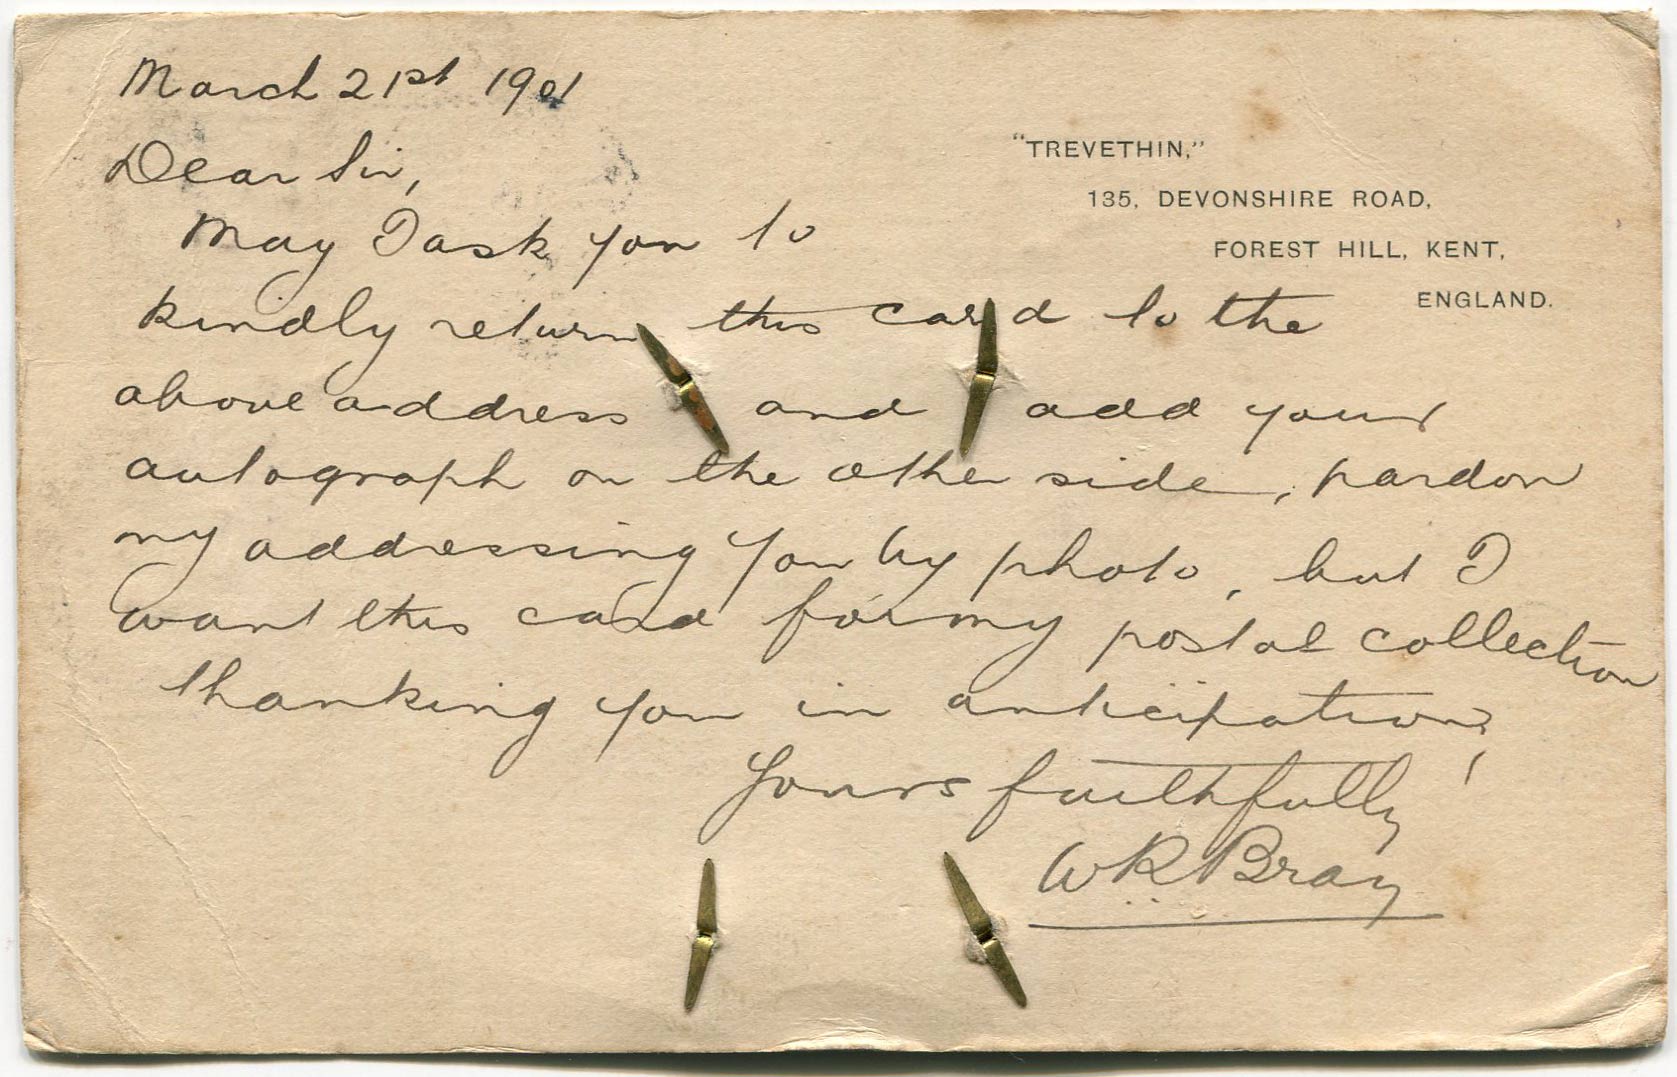 March 21st 1901
Dear Sir,
"TREVETHIN,"
135, DEVONSHIRE ROAD,
FOREST HILL, KENT,
ENGLAND.
May I ask you to
kindly return this card to the
above address and add your
autograph on the other side, pardon
my addressing you by photo, but I
want this card for my postal collection
thanking you in anticipation,
Yours faithfully
W R Bray